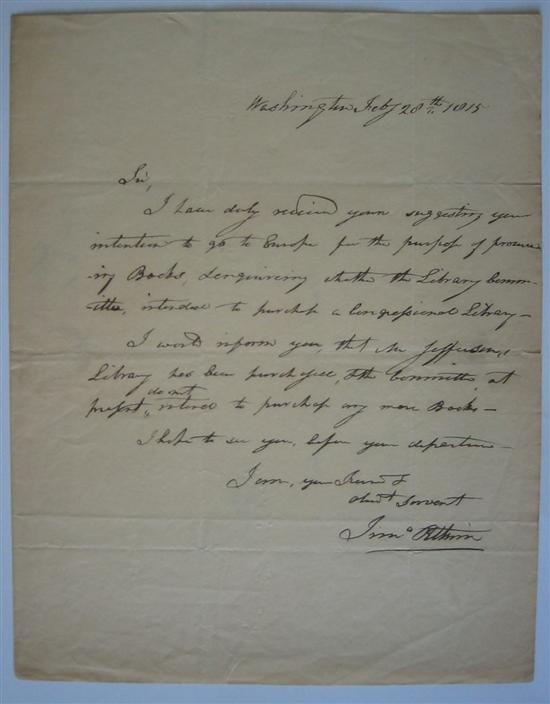 Washington Feby 28th 1815
Sir,
I have duly recieved yours suggesting your
intention to go to Europe for the purpose of procur
ing Books, & enquireing whether the Library Comm-
ittee, intended to purchase a Congressional Library—
I would inform you, that Mr Jeffersons
Library has been purchased, & the Committee, at
present, do not intend to purchase any more Books—
I hope to see you, before your departure—
I am, your Friend &
obedt servant
Timo Pitkin